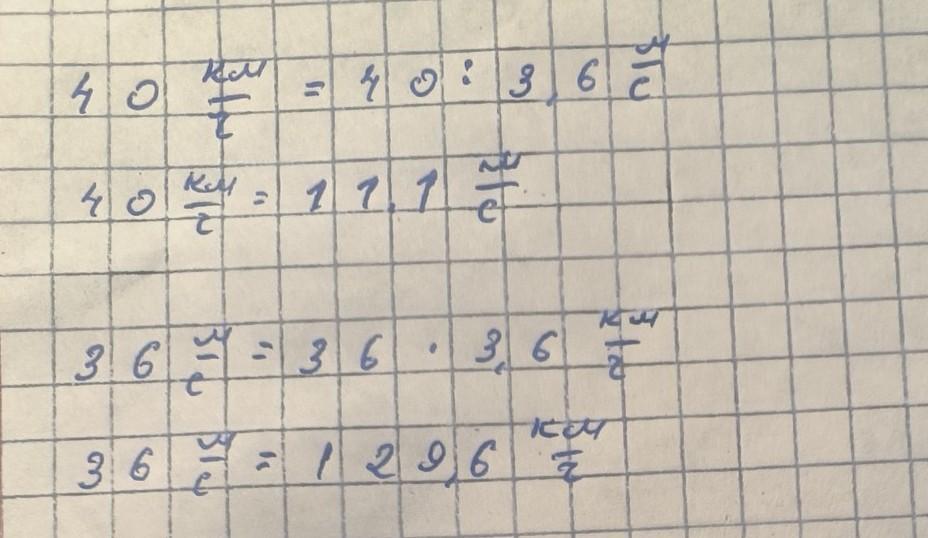 40 км/г = 40 : 3,6 м/с
40 км/г = 11,1 м/с
36 м/с = 36 · 3,6 км/г
36 м/с = 129,6 км/г